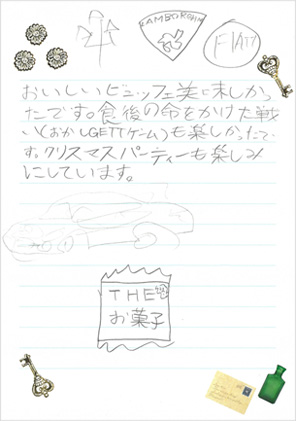 LAMBORGHINI
FIAT
おいしいビュッフェ美味しかっ
たです。食後の命をかけた戦
い(おかしGETTゲーム)も楽しかったで
す。クリスマスパーティーも楽しみ
にしています。
THE
お菓子